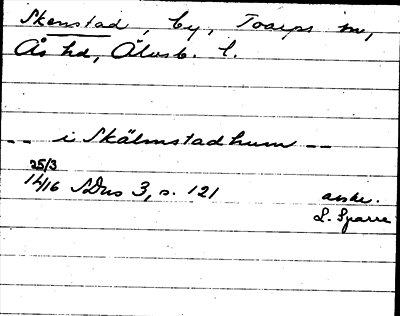 Skenstad, by, Toarps sn,
Ås hd, Älvsb. l.
-- i Skälmstadhum --
25/3
1416 SDns 3, s. 121
avskr.
L. Sparre